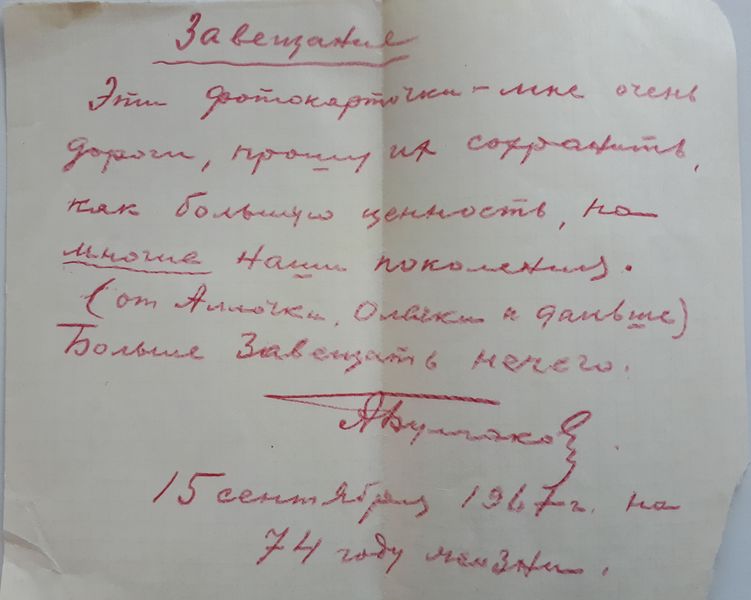 Завещание
Эти фотокарточки - мне очень
дороги, прошу их сохранить,
как большую ценность, на
многие наши поколения.
(от Аллочки, Олечки и дальше)
Больше Завещать нечего.
15 сентября 1967 г. на
74 году жизни.